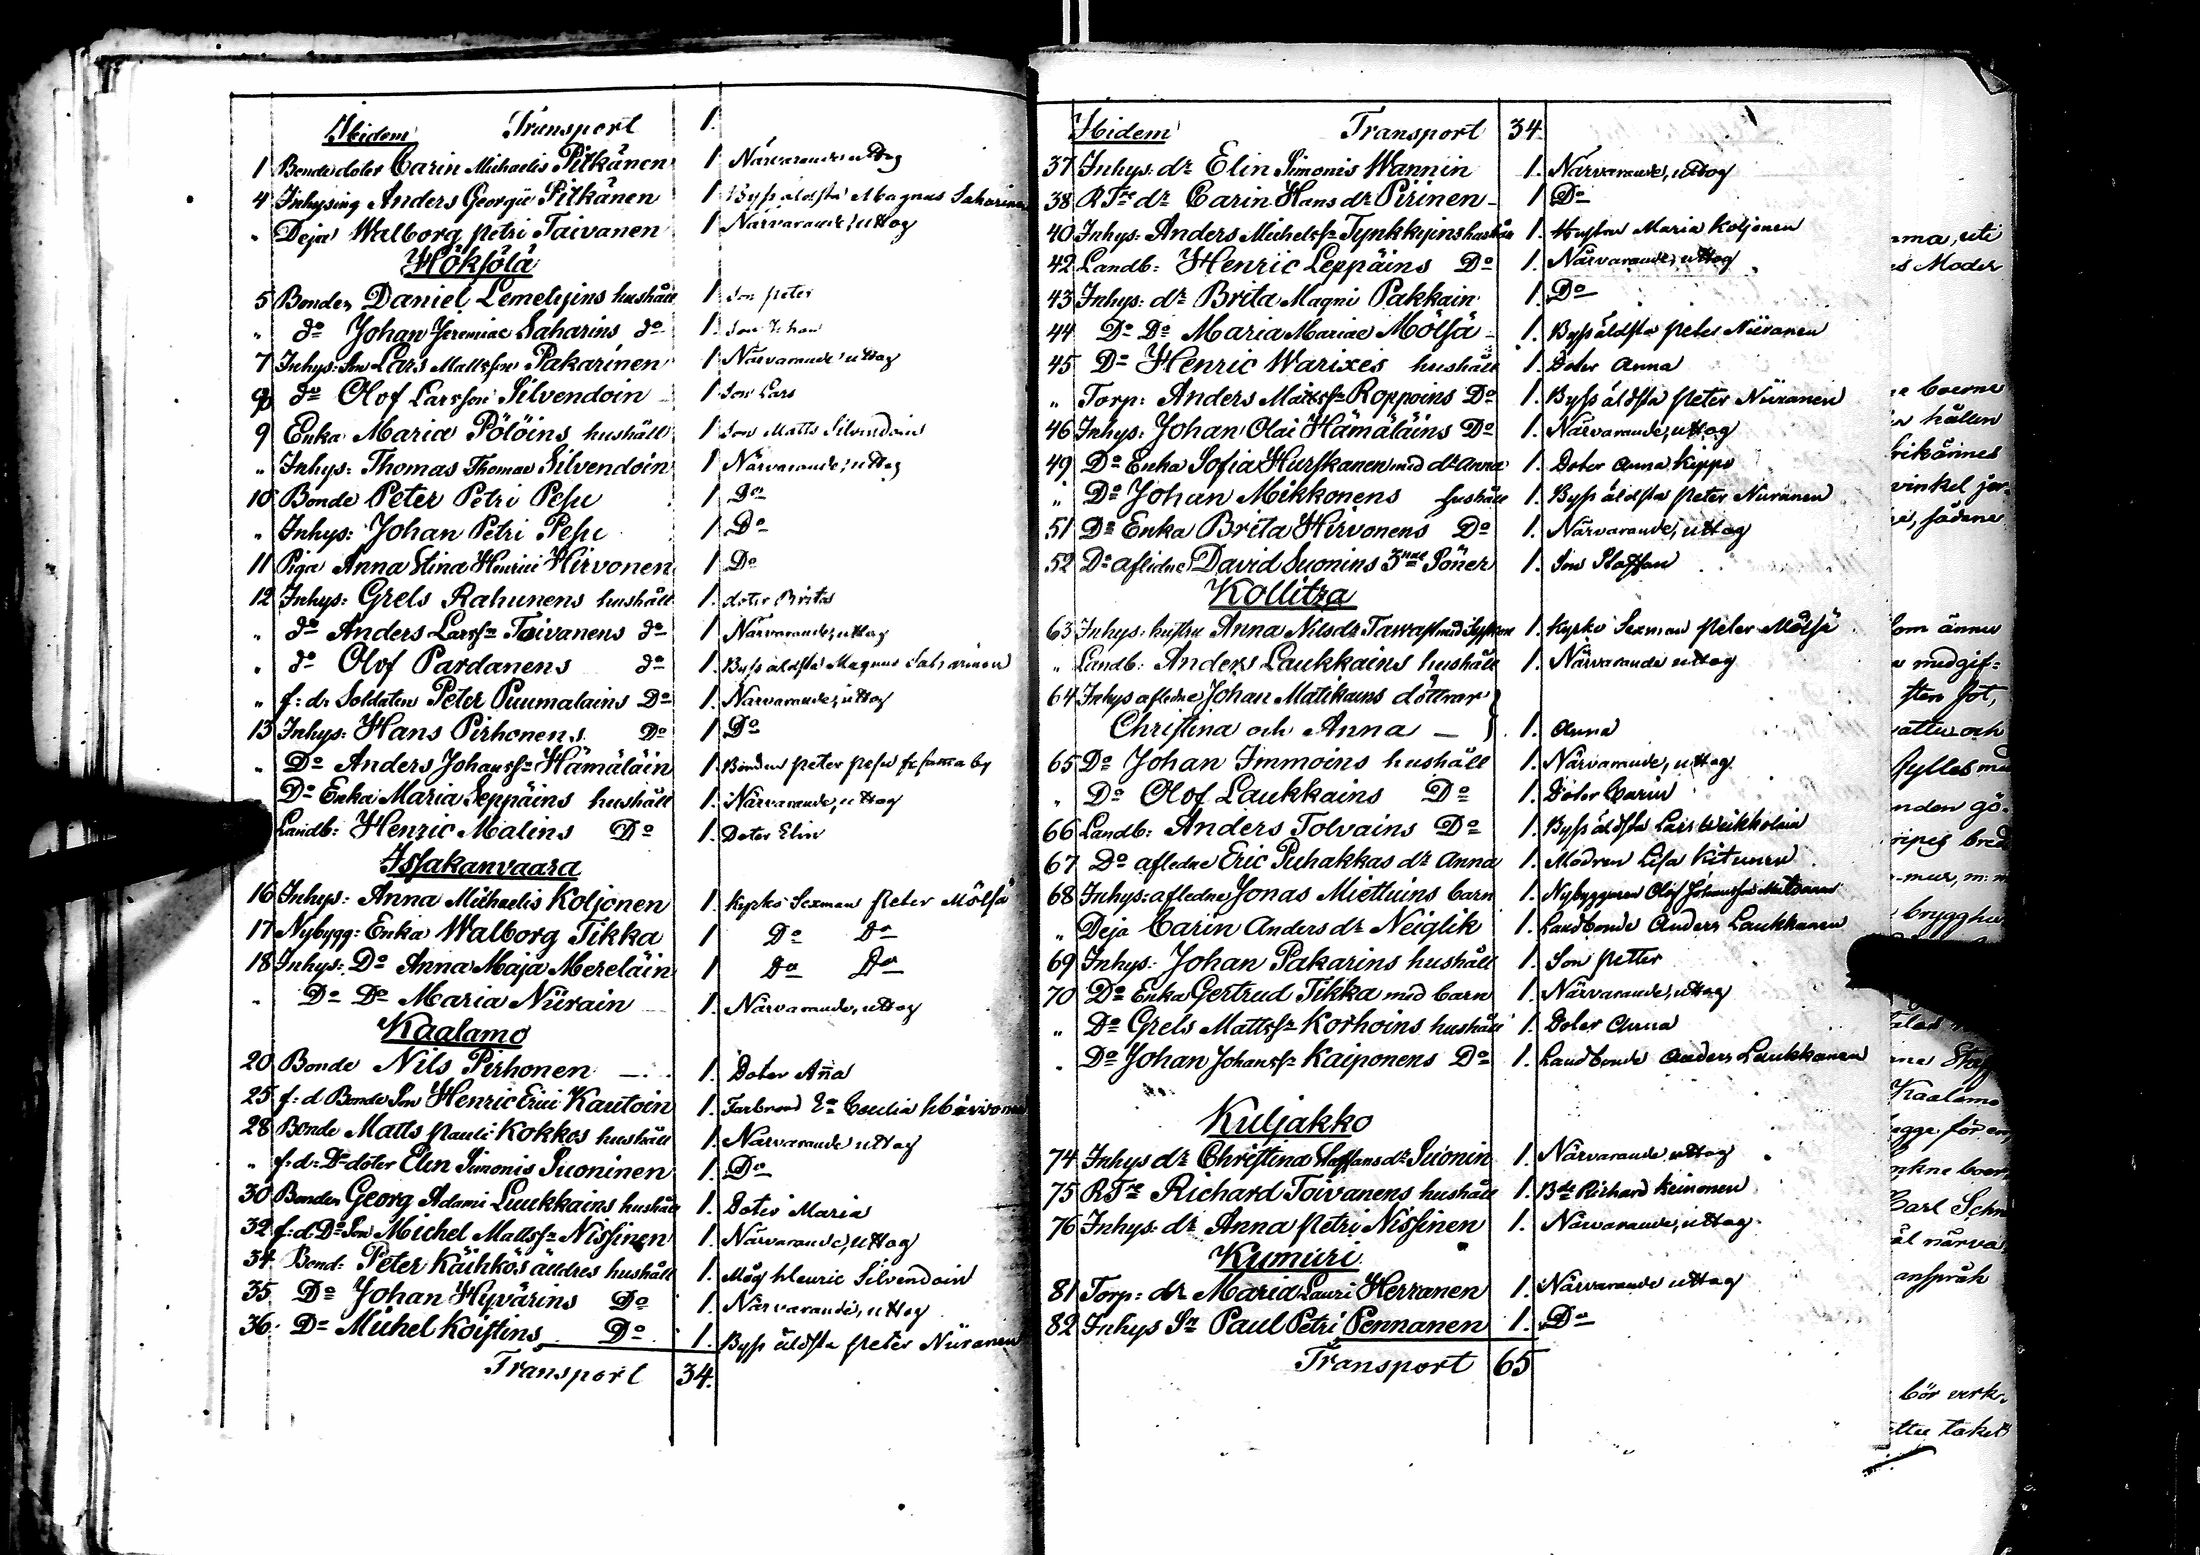 Ibidem Transport 1.
1 Bonde doter Carin Michaelis Pitkänen 1 Närvarande uttog
4 Inhysing Anders Georgii Pitkänen 1 Byss äldsta Magnus Saharinen
" Deja Walborg Petri Taivanen 1 Närvarande, uttog
Höksölä
5 Bonden Daniel Lemetyins hushåll 1 Son Peter
" do Johan Jeremiae Saharins do 1. Son Johan
7 Inhys: Son Lars Mattsson Pakarinen 1 Närvarande uttog
9 do Olof Larsson Silvendoin 1 Son Lars
9 Enka Maria Pölöins hushåll 1 Son Matts Silvendoin
" Inhys: Thomas Thomae Silvendoin 1 Närvarande, uttog
10 Bonde Peter Petri Pesu 1 Do
" Inhys: Johan Petri Pesu 1 Do
11 Piga Anna Stina Henrici Hirvonen 1 Do
12 Inhys: Grels Rahunens hushåll 1. doter Brita
" do Anders Larss: Toivanens do 1 Närvarande, uttog
" do Olof Pardanens do 1. Byss äldsta Magnus Saharinen
" f: d: Soldaten Peter Puumalains Do 1. Närvarande, uttog
13 Inhys: Hans Pirhonens Do 1 Do
" Do Anders Johanss: Hämäläin 1. Bonden Peter Pesu fr samma by
Do Enka Maria Seppäins hushåll 1. Närvarande, uttog
Landb: Henric Malins Do 1. Doter Elin
Issakanvaara
16 Inhys: Anna Michaelis Koljonen 1. Kyrko Sexman Peter Mölsä
17 Nybygg: Enka Walborg Tikka 1 Do Do
18 Inhys: Do Anna Maja Mereläin 1 Do Do
" Do Do Maria Niirain 1. Närvarande, uttog
Kaalamo
20 Bonde Nils Pirhonen 1. Doter Anna
25 f: d Bonde Son Henric Erici Kautoin 1. Farbrod
28 Bonde Matts Pauli Kokkos hushåll 1. Närvarande uttog
" f: d: Do doter Elin Simonis Suoninen 1. Do
30 Bonden Georg Adami Luukkains hushåll 1. Doter Maria
32 f: d: Do Son Michel Mattss: Nissinen 1. Närvarande, uttog
34 Bond: Peter Käihkös äldres hushåll 1. Måg Henric Silvendoin
35 Do Johan Hyvärins Do 1. Närvarande, uttog
36. Do Michel Koistins Do 1. Byss äldsta Peter Niiranen
Transport 34.
Ibidem Transport 34.
37 Inhys: dr Elin Simonis Wannin 1. Närvarande, uttog
38 R Tre dr Carin Hans dr Pirinen 1 Do
40 Inhys: Anders Michelss: Tynkkyins hushåll 1. Hustru Maria Koljonen
42 Landb: Henric Leppäins Do 1. Närvarande, uttog
43 Inhys: dr Brita Magni Pakkain 1. Do
44 Do Do Maria Mariae Mölsä 1. Byss äldsta Peter Niiranen
45 Do Henric Warixes hushåll 1 Doter Anna
" Torp: Anders Matss: Roppoins Do 1. Byss äldsta Peter Niiranen
46 Inhys: Johan Olai Hämäläins Do 1. Närvarande, uttog
49 Do Enka Sofia Hurskanen med dr Anna 1. Doter Anna Kippo
" Do Johan Mikkonens hushåll 1. Byss äldsta Peter Niiranen
51 Do Enka Brita Hirvonens Do 1. Närvarande, uttog
52 Do aflidne David Suonins 3ne Söner 1. Son Staffan
Kollitza
63 Inhys: hustru Anna Nilsdr Tawast med 1. Kyrko Sexman Peter Mölsä
" Landb: Anders Laukkains hushåll 1. Närvarande uttog
64 Inhys afledne Johan Matikains döttrar
Christina och Anna 1. Anna
65 Do Johan Immoins hushåll 1. Närvarande, uttog
" Do Olof Laukkains Do 1. Doter Carin
66 Landb: Anders Tolvains Do 1. Byss äldsta Lars Weikkolain
67 Do afledne Eric Puhakkas dr Anna 1. Modren Lisa Kitunen
68 Inhys: afledne Jonas Miettuins barn 1. Nybyggaren Olof Johansson
" Deja Carin Anders dr Neiglik 1. Landbonde Anders Laukkanen
69 Inhys: Johan Pakarins hushåll 1. Son Petter
70 Do Enka Gertrud Tikka med barn 1. Närvarande, uttog
" Do Grels Mattss: Korhoins hushåll 1. Doter Anna
" Do Johan Johanss: Kaiponens Do 1. Landbonde Anders Laukkanen
Kuljakko
74 Inhys dr Christina Staffans dr Suonin 1. Närvarande uttog
75 R Tre Richard Toivanens hushåll 1. Bde Richard Keinonen
76 Inhys: dr Anna Petri Nissinen 1. Närvarande, uttog
Kumuri
81 Torp: dr Maria Lauri Herranen 1. Närvarande uttog
82 Inhys Sn Paul Petri Pennanen 1. Do
Transport 65
mma, uti
es Moder
boerne
hållen
vinkel
sådane
som ännu
medgif=
och
Kaalamo
Carl
närva
anspråk
bör verk.
taket